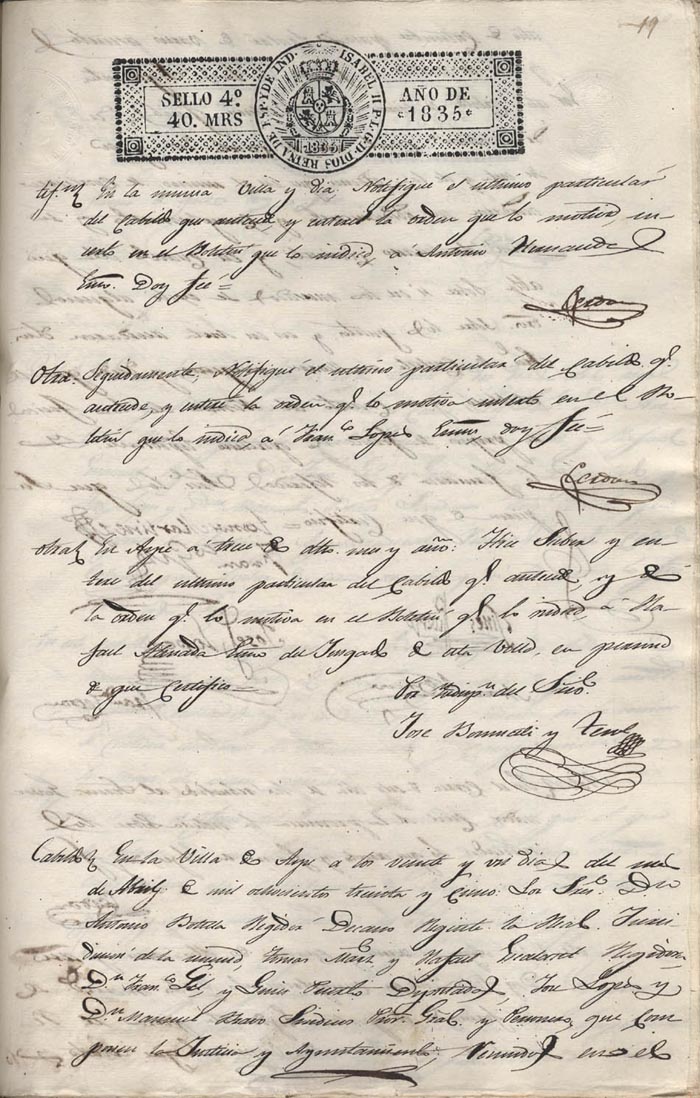 19
SELLO 4º
40. MRS
ISABEL II P.L.G.D. DIOS REINA DE ESP. Y DE IND.
1835
AÑO DE
1835
En la misma Villa y dia Notifiqué el ultimo particular
del Cabildo que antecede y enteré la orden que lo motiva, in-
serto en el Boletin que lo indica á Antonio
Esmo. Doy fée=
Cerdan
Otra. Seguidamente, Notifiqué el ultimo particular del Cabildo q.e
antecede, y enteré la orden q.e lo motiva inserto en el Bo-
letin que lo indica á Fran.co Lopes Esmo doy fée=
Cerdan
otra En Aspe á trece de dho. mes y año: Hice Saber y en-
teré del ultimo particular del Cabildo q.e antecede, y de
la orden q.e lo motiva en el Boletin q.e lo indica á Ra-
fael Almada Esmo del Jusgado de esta Villa, en
de que Certifico=
Por del Srio.
Jose Bonmati y
Cabildo En la Villa de Aspe a los veinte y dos dias del mes
de Abril de mil ochocientos treinta y Cinco: Los Sres. Dn
Antonio Botella Regidor Decano Regente la Real Juris-
diccion de la misma, Tomas Mart.z y Rafael Regidores
Dn. Fran.co Gil, y Luis Diputados, Jose Lopes y
Dn. Manuel Bravo Sindicos Pror. Gral. y Personero, que com-
ponen la Justicia y Ayuntamiento, Reunidos en el